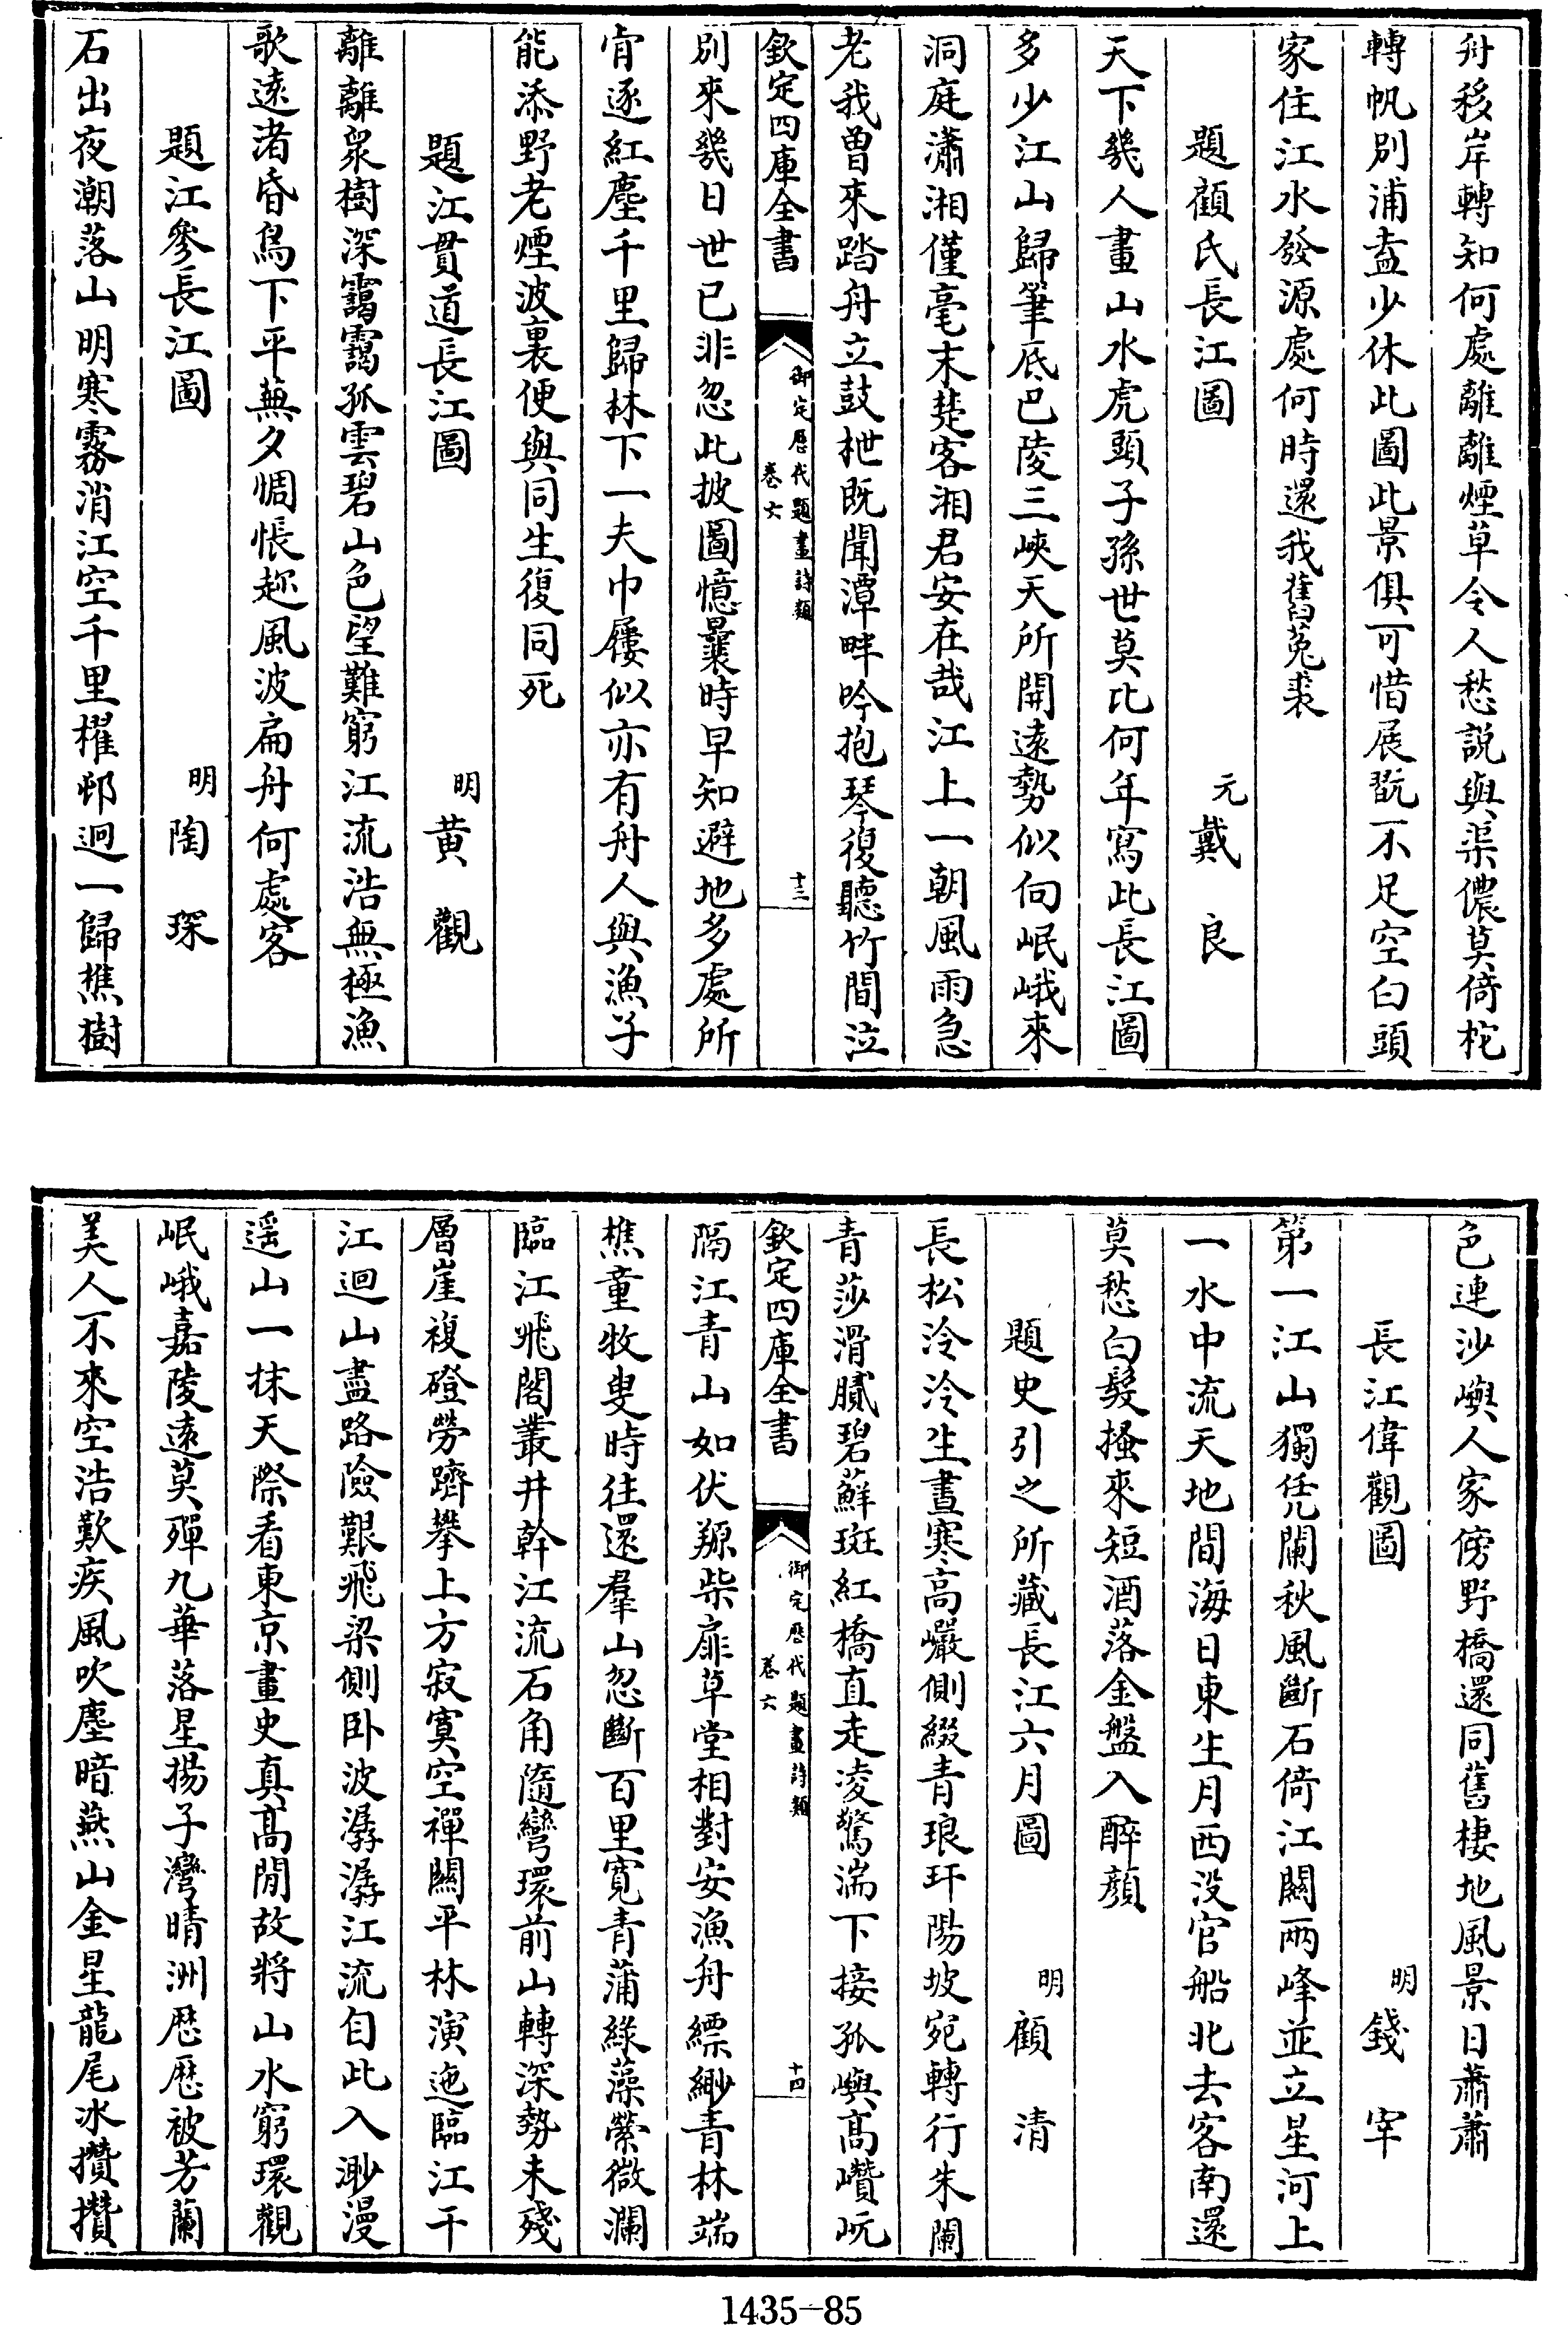 舟移岸轉知何處離離煙草令人愁說與渠儂莫倚柁
轉帆別浦盍少休此圖此景俱可惜展翫不足空白頭
家住江水發源處何時還我舊菟裘
題顧氏長江圖
元戴良
天下幾人畫山水虎頭子孫世莫比何年寫此長江圖
多少江山歸筆底巴陵三峽天所開遠勢似向岷峨來
洞庭瀟湘僅毫末楚客湘君安在哉江上一朝風雨急
老我曾來踏舟立鼓枻既聞潭畔吟抱琴復聽竹間泣
欽定四庫全書
御定歷代題畫詩類
卷六
十三
別來幾日世已非忽此披圖憶曩時早知避地多處所
肯逐紅塵千里歸林下一夫巾屨似亦有舟人與漁子
能添野老煙波裏便與同生復同死
題江貫道長江圖
明黃觀
離離眾樹深靄靄孤雲碧山色望難窮江流浩無極漁
歌遠渚昏鳥下平蕪夕惆悵趂風波扁舟何處客
題江參長江圖
明陶琛
石出夜潮落山明寒霧消江空千里櫂邨迥一歸樵樹
色連沙嶼人家傍野橋還同舊棲地風景日蕭蕭
長江偉觀圖
明錢宰
第一江山獨凭闌秋風斷石倚江關兩峰並立星河上
一水中流天地間海日東生月西没官船北去客南還
莫愁白髮搔來短酒落金盤入醉顏
題史引之所藏長江六月圖
明顧清
長松泠泠生晝寒高巖側綴青琅玕陽坡宛轉行朱闌
青莎滑膩碧蘚斑紅橋直走凌驚湍下接孤嶼高巑岏
欽定四庫全書
御定歷代題畫詩類
卷六
十四
隔江青山如伏羱柴扉草堂相對安漁舟縹緲青林端
樵童牧叟時往還羣山忽斷百里寬青蒲綠藻縈微瀾
臨江飛閣叢井幹江流石角隨彎環前山轉深勢未殘
層崖複磴勞躋攀上方寂寞空禪關平林演迤臨江干
江迴山盡路險艱飛梁側卧波潺潺江流自此入渺漫
遥山一抹天際看東京畫史真高閒故將山水窮環觀
岷峨嘉陵遠莫殫九華落星揚子灣晴洲歷歷被芳蘭
美人不來空浩歎疾風吹塵暗燕山金星龍尾冰攢攢
1435-85